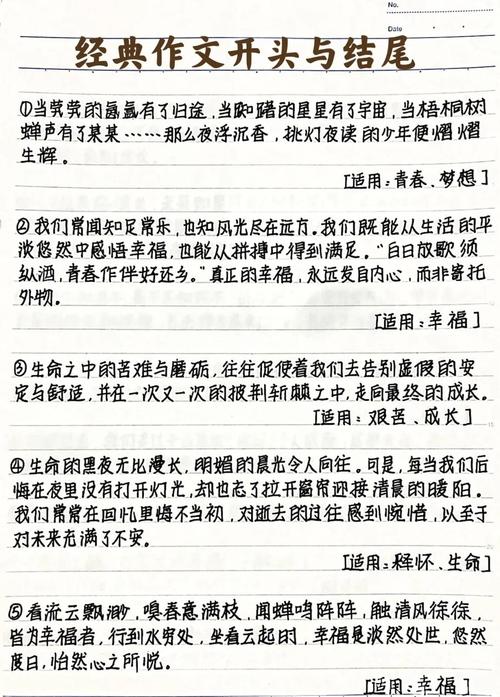 No.
Date
经典作文开头与结尾
①当茕茕的氤氲有了归途，当踟躇的星星有了宇宙，当梧桐树
蝉声有了某某……那么夜浮沉香，挑灯夜读的少年便熠熠
生辉。
[适用：青春、梦想]
②我们常闻知足常乐，也知风光尽在远方。我们既能从生活的平
淡悠然中感悟幸福，也能从拼搏中得到满足。“白日放歌须
纵酒，青春作伴好还乡。”真正的幸福，永远发自内心，而非寄托
外物。
[适用：幸福]
③生命之中的苦难与磨砺，往往促使着我们去告别虚假的安
定与舒适，并在一次又一次的披荆斩颠之中，走向最终的成长。
[适用：艰苦、成长]
④生命的黑夜无比漫长，明媚的晨光令人向往。可是，每当我们后
悔在夜里没有打开灯光，却也忘了拉开窗帘迎接清晨的暖阳。
我们常常在回忆里悔不当初，对逝去的过往感到惋惜，以至于
对未来充满了不安。
[适用：释怀、生命]
⑤看流云飘渺，嗅春意满枝，闻蝉鸣阵阵，触清风徐徐，
皆为幸福者，行到水穷处，坐看云起时，幸福是淡然处世，悠然
度日，怡然心之所悦。
[适用：幸福]